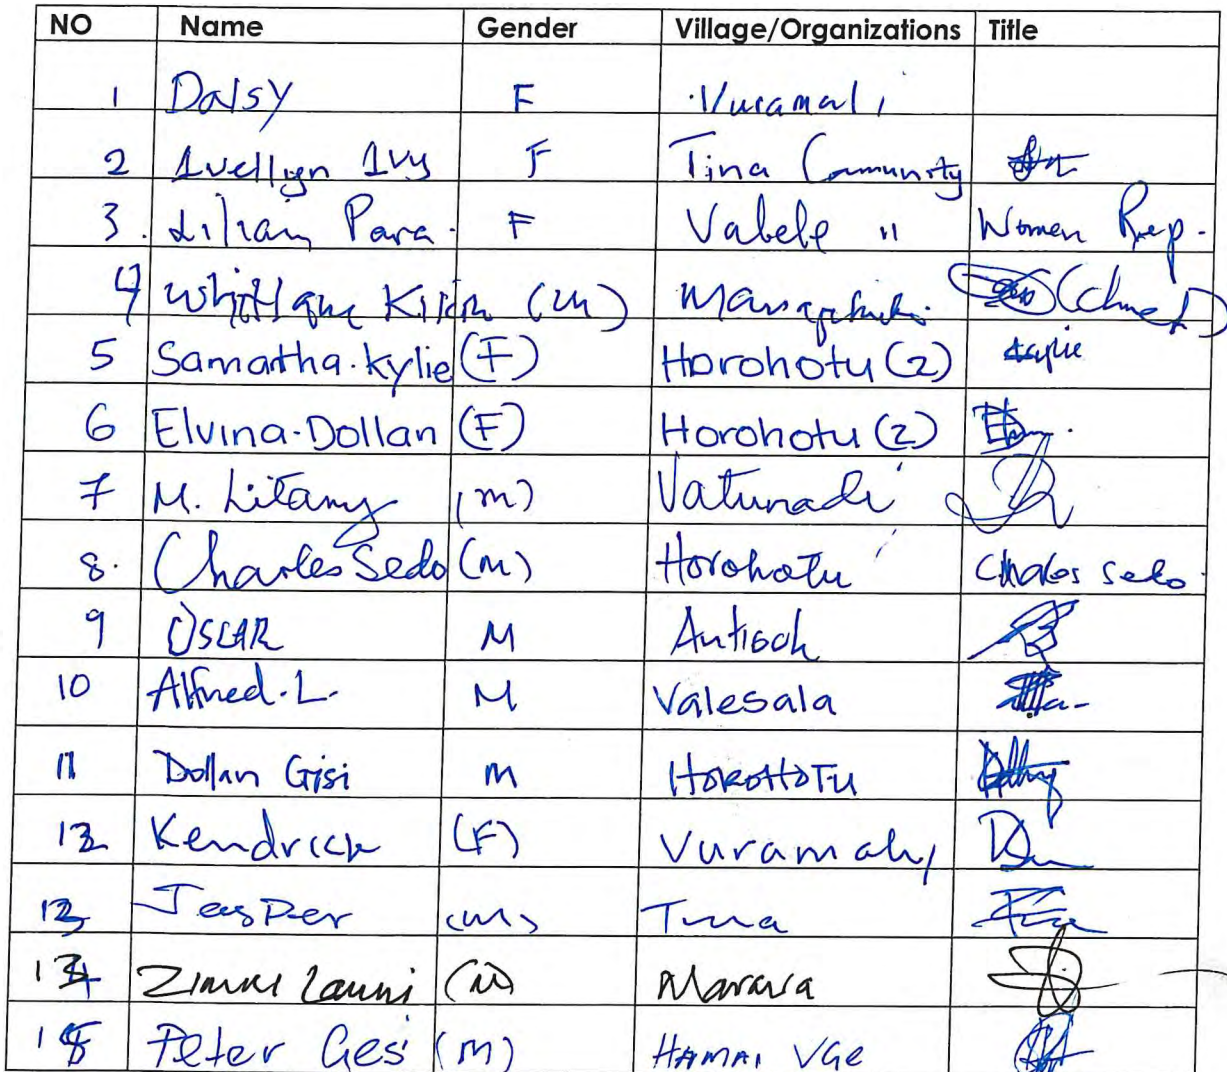 NO Name Gender Village/Organizations Title
1 Daisy F Vuramali
2 Avellyn Ivy F Tina Community
3. Lilian Para. F Vabele " Women Rep.
4 (m)
5 Samatha. Kylie (F) Horohotu (2) kylie
6 Elvina. Dollan (F) Horohotu (2)
7 M. Litany (m) Vatunadi
8. Charles Sedo (m) Horohotu Charles Sedo.
9 OSCAR M Antioch
10 Alfred. L. M Valesala
11 Dollan Gisi M HOROHOTU
12 Kendrick (F) Vuramali
13 Jasper (m) Tina
14 (m) Marava
15 Peter Gesi (m) HAMAI VGe